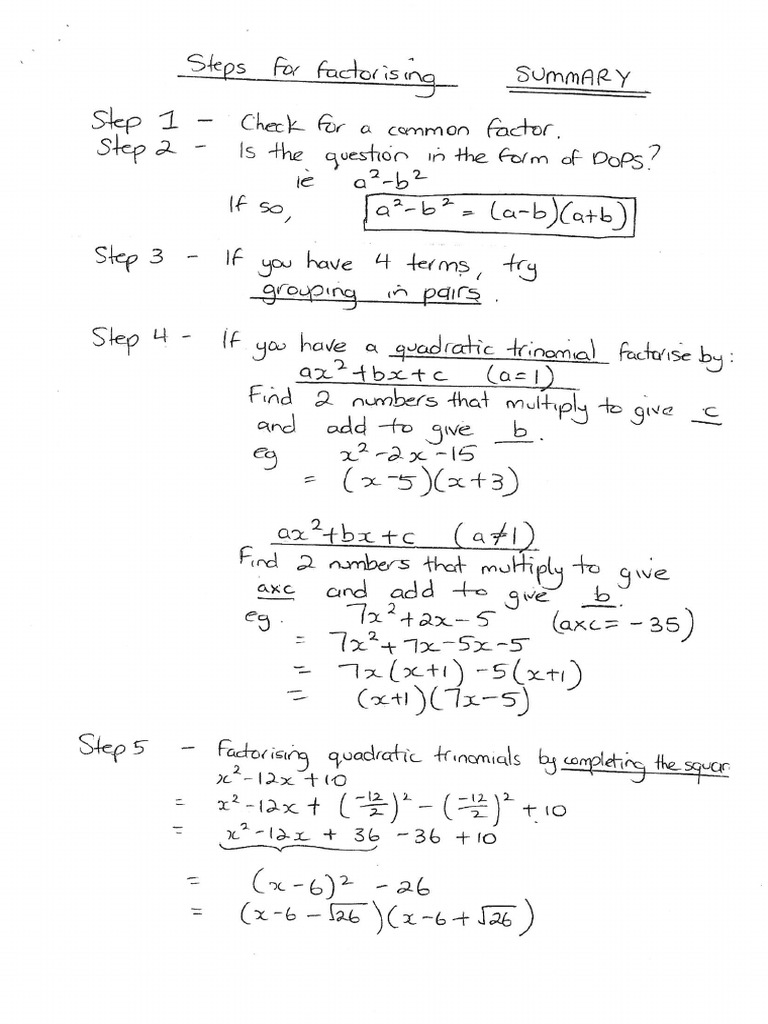 Steps for factorising SUMMARY
Step 1 - Check for a common factor.
Step 2 - Is the question in the form of DOPS?
ie a²-b²
If so, a²-b² = (a-b)(a+b)
Step 3 - If you have 4 terms, try
grouping in pairs.
Step 4 - If you have a quadratic trinomial factorise by:
ax²+bx+c (a=1)
Find 2 numbers that multiply to give c
and add to give b.
eg x²-2x-15
= (x-5)(x+3)
ax²+bx+c (a≠1)
Find 2 numbers that multiply to give
axc and add to give b.
eg. 7x²+2x-5 (axc=-35)
= 7x²+7x-5x-5
= 7x(x+1)-5(x+1)
= (x+1)(7x-5)
Step 5 - Factorising quadratic trinomials by completing the squar
x²-12x+10
= x²-12x+(-12/2)²-(-12/2)²+10
= x²-12x+36-36+10
= (x-6)²-26
= (x-6-√26)(x-6+√26)